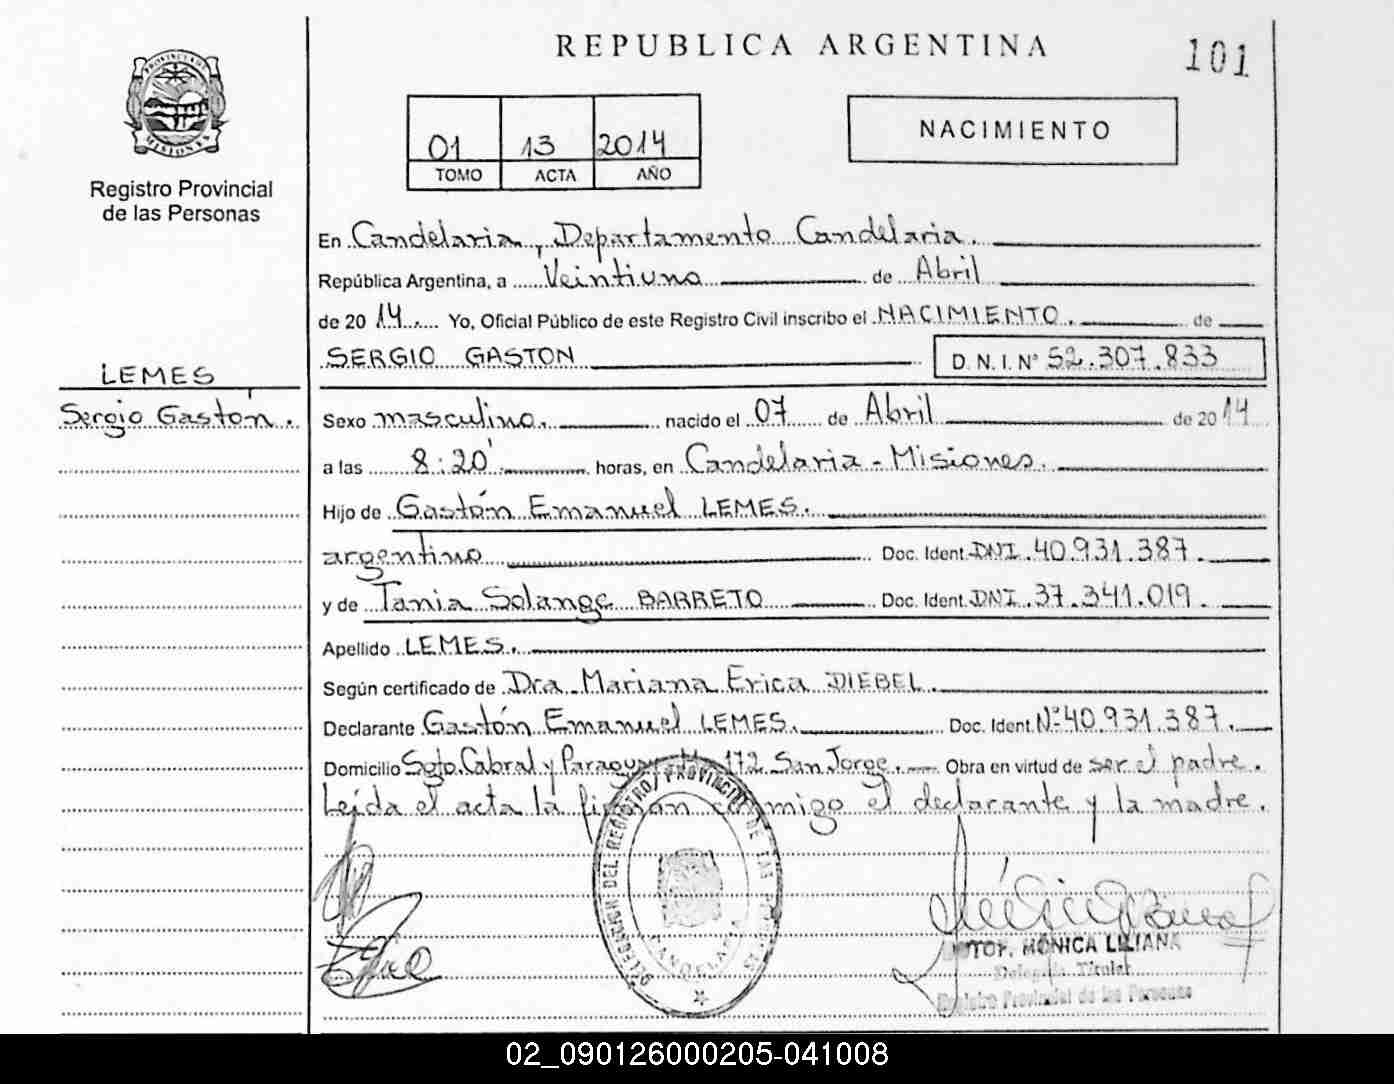 REPUBLICA ARGENTINA
101
PROVINCIA DE
MISIONES
Registro Provincial
de las Personas
01 13 2014
TOMO ACTA AÑO
NACIMIENTO
En Candelaria, Departamento Candelaria.
República Argentina, a Veintiuno de Abril
de 2014. Yo, Oficial Público de este Registro Civil inscribo el NACIMIENTO. de
SERGIO GASTON D.N.I. Nº 52.307.833
LEMES
Sergio Gastón.
Sexo masculino. nacido el 07 de Abril de 2014
a las 8:20' horas, en Candelaria - Misiones.
Hijo de Gastón Emanuel LEMES.
argentino Doc. Ident. DNI. 40.931.387.
y de Tania Solange BARRETO Doc. Ident. DNI. 37.341.019.
Apellido LEMES.
Según certificado de Dra. Mariana Erica DIEBEL.
Declarante Gastón Emanuel LEMES. Doc. Ident. Nº 40.931.387.
Domicilio Sgto. Cabral y Paraguay 172 San Jorge. Obra en virtud de ser el padre.
Leída el acta la firman conmigo el declarante y la madre.
DELEGACIÓN DEL REGISTRO PROVINCIAL DE LAS
CANDELARIA
MÓNICA LILIANA
Delegada Titular
Registro Provincial de las Personas
02_090126000205-041008